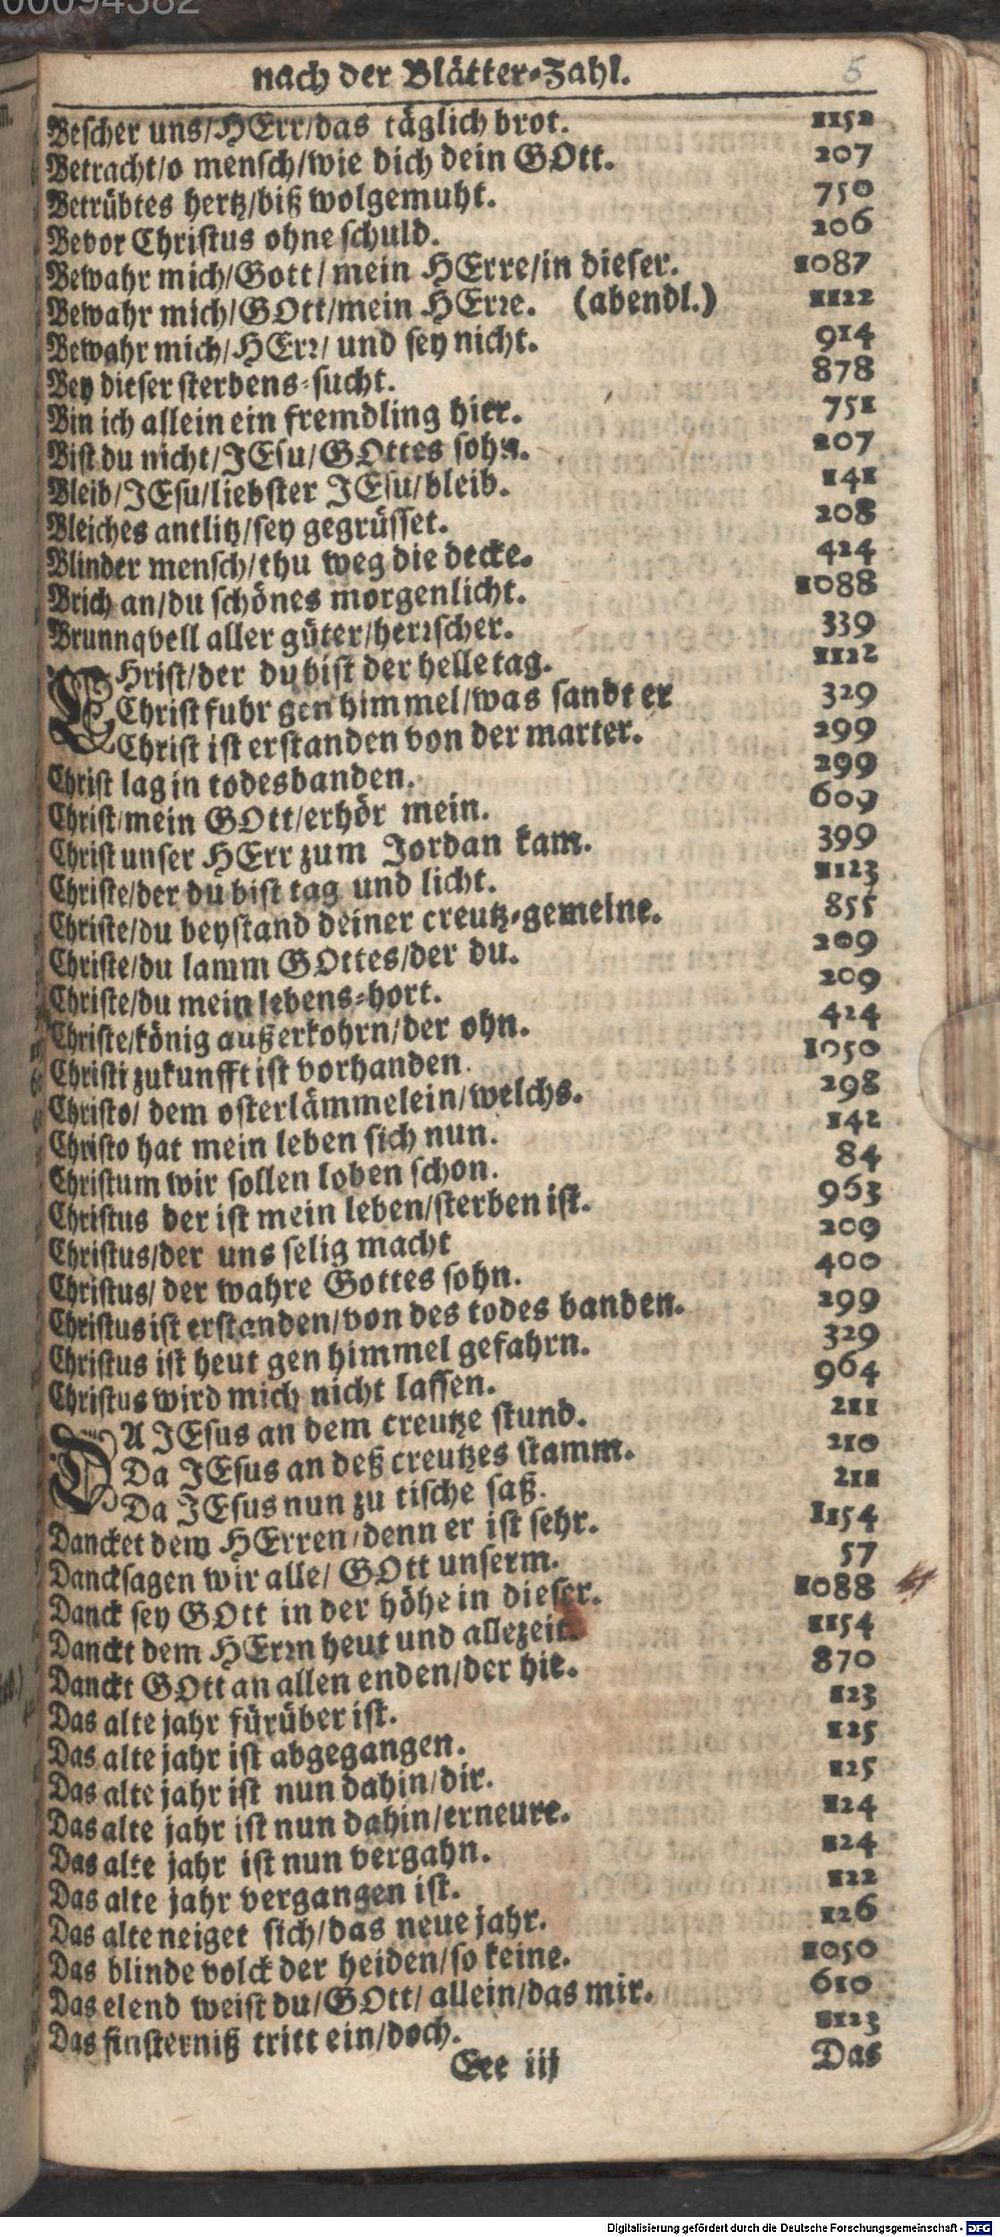 00094382
nach der Blätter-Zahl. 5
Bescher uns/HErr/das täglich brot. 1152
Betracht/o mensch/wie dich dein GOtt. 207
Betrübtes hertz/biß wolgemuht. 750
Bevor Christus ohne schuld. 206
Bewahr mich/Gott/mein HErre/in dieser. 1087
Bewahr mich/GOtt/mein HErre. (abendl.) 1122
Bewahr mich/HErr/und sey nicht. 914
Bey dieser sterbens-sucht. 878
Bin ich allein ein fremdling hier. 751
Bist du nicht/JEsu/GOttes sohn. 207
Bleib/JEsu/liebster JEsu/bleib. 141
Bleiches antlitz/sey gegrüsset. 208
Blinder mensch/thu weg die decke. 424
Brich an/du schönes morgenlicht. 1088
Brunnqvell aller güter/herrscher. 339
CHrist/der du bist der helle tag. 1122
Christ fuhr gen himmel/was sandt er 329
Christ ist erstanden von der marter. 299
Christ lag in todesbanden. 299
Christ/mein GOtt/erhör mein. 609
Christ unser HErr zum Jordan kam. 399
Christe/der du bist tag und licht. 1123
Christe/du beystand deiner creutz-gemeine. 855
Christe/du lamm GOttes/der du. 209
Christe/du mein lebens-hort. 209
Christe/könig außerkohrn/der ohn. 424
Christi zukunfft ist vorhanden. 1050
Christo/dem osterlämmelein/welchs. 298
Christo hat mein leben sich nun. 142
Christum wir sollen loben schon. 84
Christus der ist mein leben/sterben ist. 963
Christus/der uns selig macht 209
Christus/der wahre Gottes sohn. 400
Christus ist erstanden/von des todes banden. 299
Christus ist heut gen himmel gefahrn. 329
Christus wird mich nicht lassen. 964
DA JEsus an dem creutze stund. 211
Da JEsus an deß creutzes stamm. 210
Da JEsus nun zu tische saß. 211
Dancket dem HErren/denn er ist sehr. 1154
Dancksagen wir alle/GOtt unserm. 57
Danck sey GOtt in der höhe in dieser. 1088
Danckt dem HErrn heut und allezeit. 1154
Danckt GOtt an allen enden/der hie. 870
Das alte jahr fürüber ist. 123
Das alte jahr ist abgegangen. 125
Das alte jahr ist nun dahin/dir. 125
Das alte jahr ist nun dahin/erneure. 124
Das alte jahr ist nun vergahn. 124
Das alte jahr vergangen ist. 122
Das alte neiget sich/das neue jahr. 126
Das blinde volck der heiden/so keine. 1050
Das elend weist du/GOtt/allein/das mir. 610
Das finsterniß tritt ein/doch. 1123
Eee iij Das
Digitalisierung gefördert durch die Deutsche Forschungsgemeinschaft - DFG